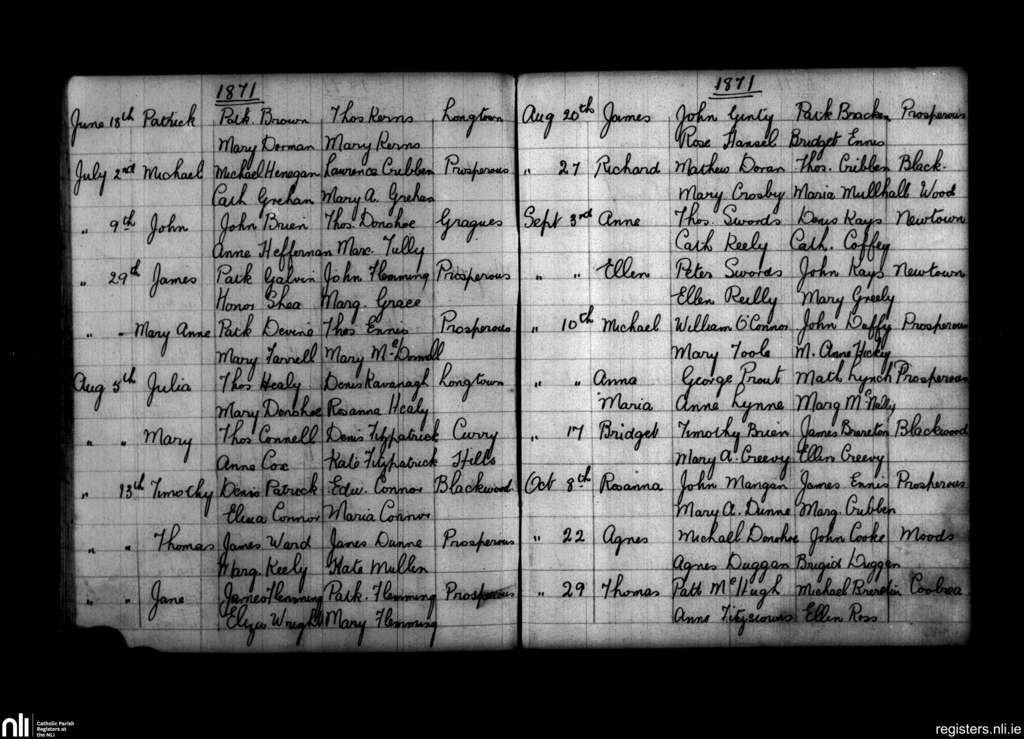 1871
June 18th Patrick Patk. Brown Thos Kerns Longtown
Mary Dorman Mary Kerns
July 2nd Michael Michael Henegan Laurence Cribben Prosperous
Cath Grehan Mary A. Grehan
" 9th John John Brien Thos. Donohoe Gragues
Anne Heffernan Marc. Tully
" 29th James Patk Galvin John Flemming Prosperous
Honor Shea Marg. Grace
" " Mary Anne Patk Devine Thos Ennis Prosperous
Mary Farrell Mary McDonnell
Aug 5th Julia Thos Healy Denis Kavanagh Longtown
Mary Donohoe Rosanna Healy
" " Mary Thos Connell Denis Fitzpatrick Curry
Anne Cox Kate Fitzpatrick Hills
" 13th Timothy Denis Patrick Edw. Connor Blackwood
Eliza Connor Maria Connor
" " Thomas James Ward James Dunne Prosperous
Marg. Keely Kate Mullen
" " Jane James Flemming Patk. Flemming Prosperous
Eliza Wright Mary Flemming
1871
Aug 20th James John Ginty Patk Bracken Prosperous
Rose Hansel Bridget Ennis
" 27 Richard Mathew Doran Thos. Cribben Black-
Mary Crosby Maria Mullhall Wood
Sept 3rd Anne Thos. Swords Denis Kays Newtown
Cath Keely Cath. Coffey
" " Ellen Peter Swords John Kays Newtown
Ellen Reilly Mary Greely
" 10th Michael William O'Connor John Daffy Prosperous
Mary Toole M. Anne Hickey
" " Anna George Prout Math Lynch Prosperous
Maria Anne Lynne Marg McNally
" 17 Bridget Timothy Brien James Brereton Blackwood
Mary A. Creevy Ellen Creevy
Oct 8th Rosanna John Mangan James Ennis Prosperous
Mary A. Dunne Marg. Cribben
" 22 Agnes Michael Donohoe John Cooke Moods
Agnes Duggan Brigid Duggan
" 29 Thomas Patt McHugh Michael Brereton
Anne Ellen Ross
nli Catholic Parish
Registers at
the NLI
registers.nli.ie